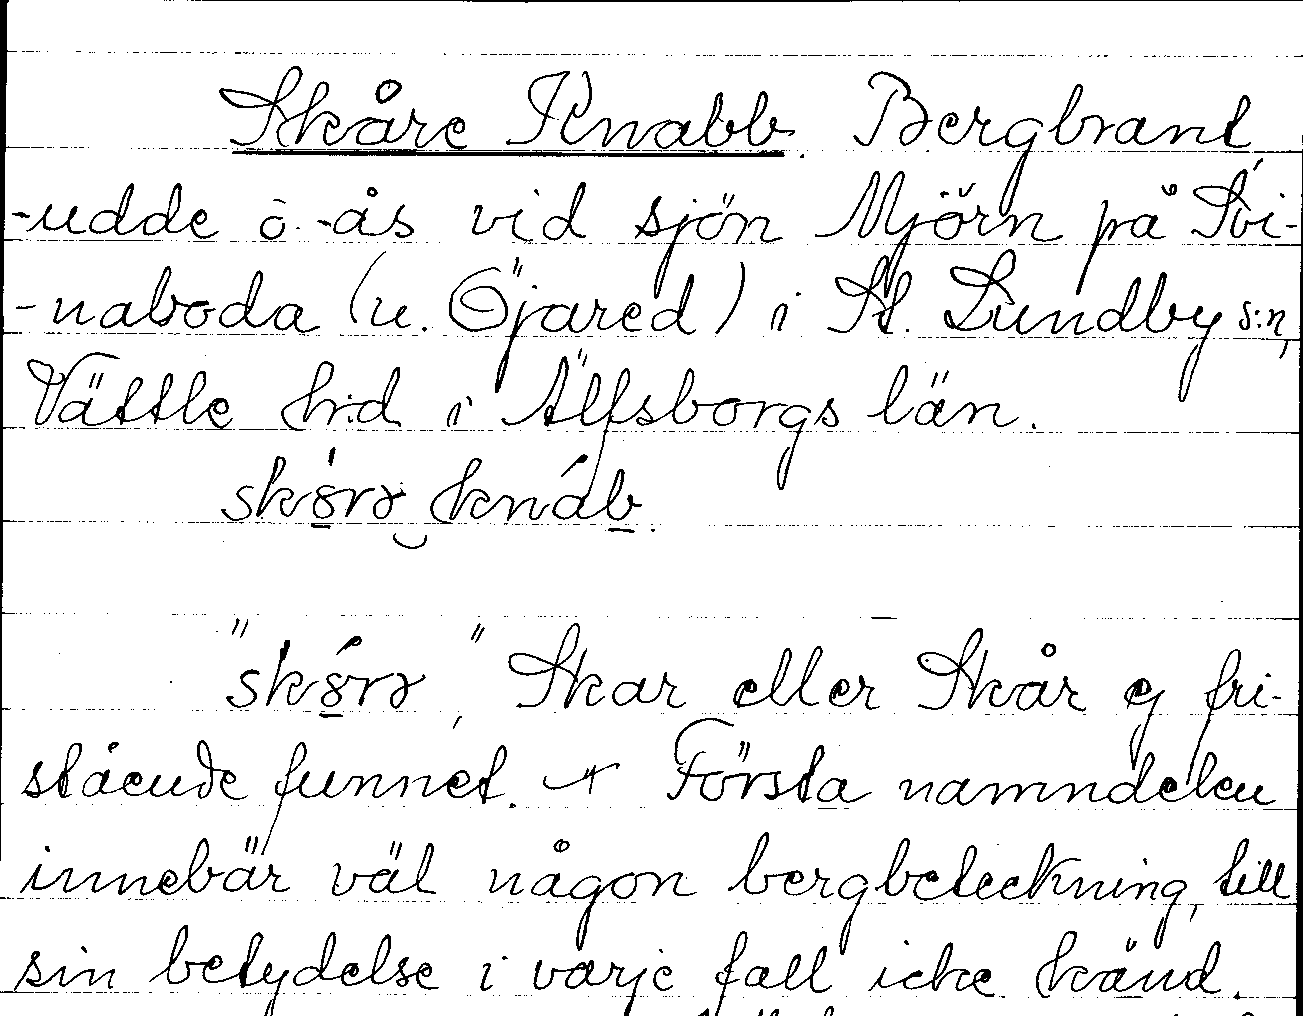 Skåre Knabb. Bergbrant,
-udde o. -ås vid sjön Mjörn på Svi-
-naboda (u. Öjared) i St. Lundby s:n,
Vättle h:d i Älfsborgs län.
"Skar eller Skår ej fri-
stående funnet. Första namndelen
innebär väl någon bergbeteckning, till
sin betydelse i varje fall icke känd.